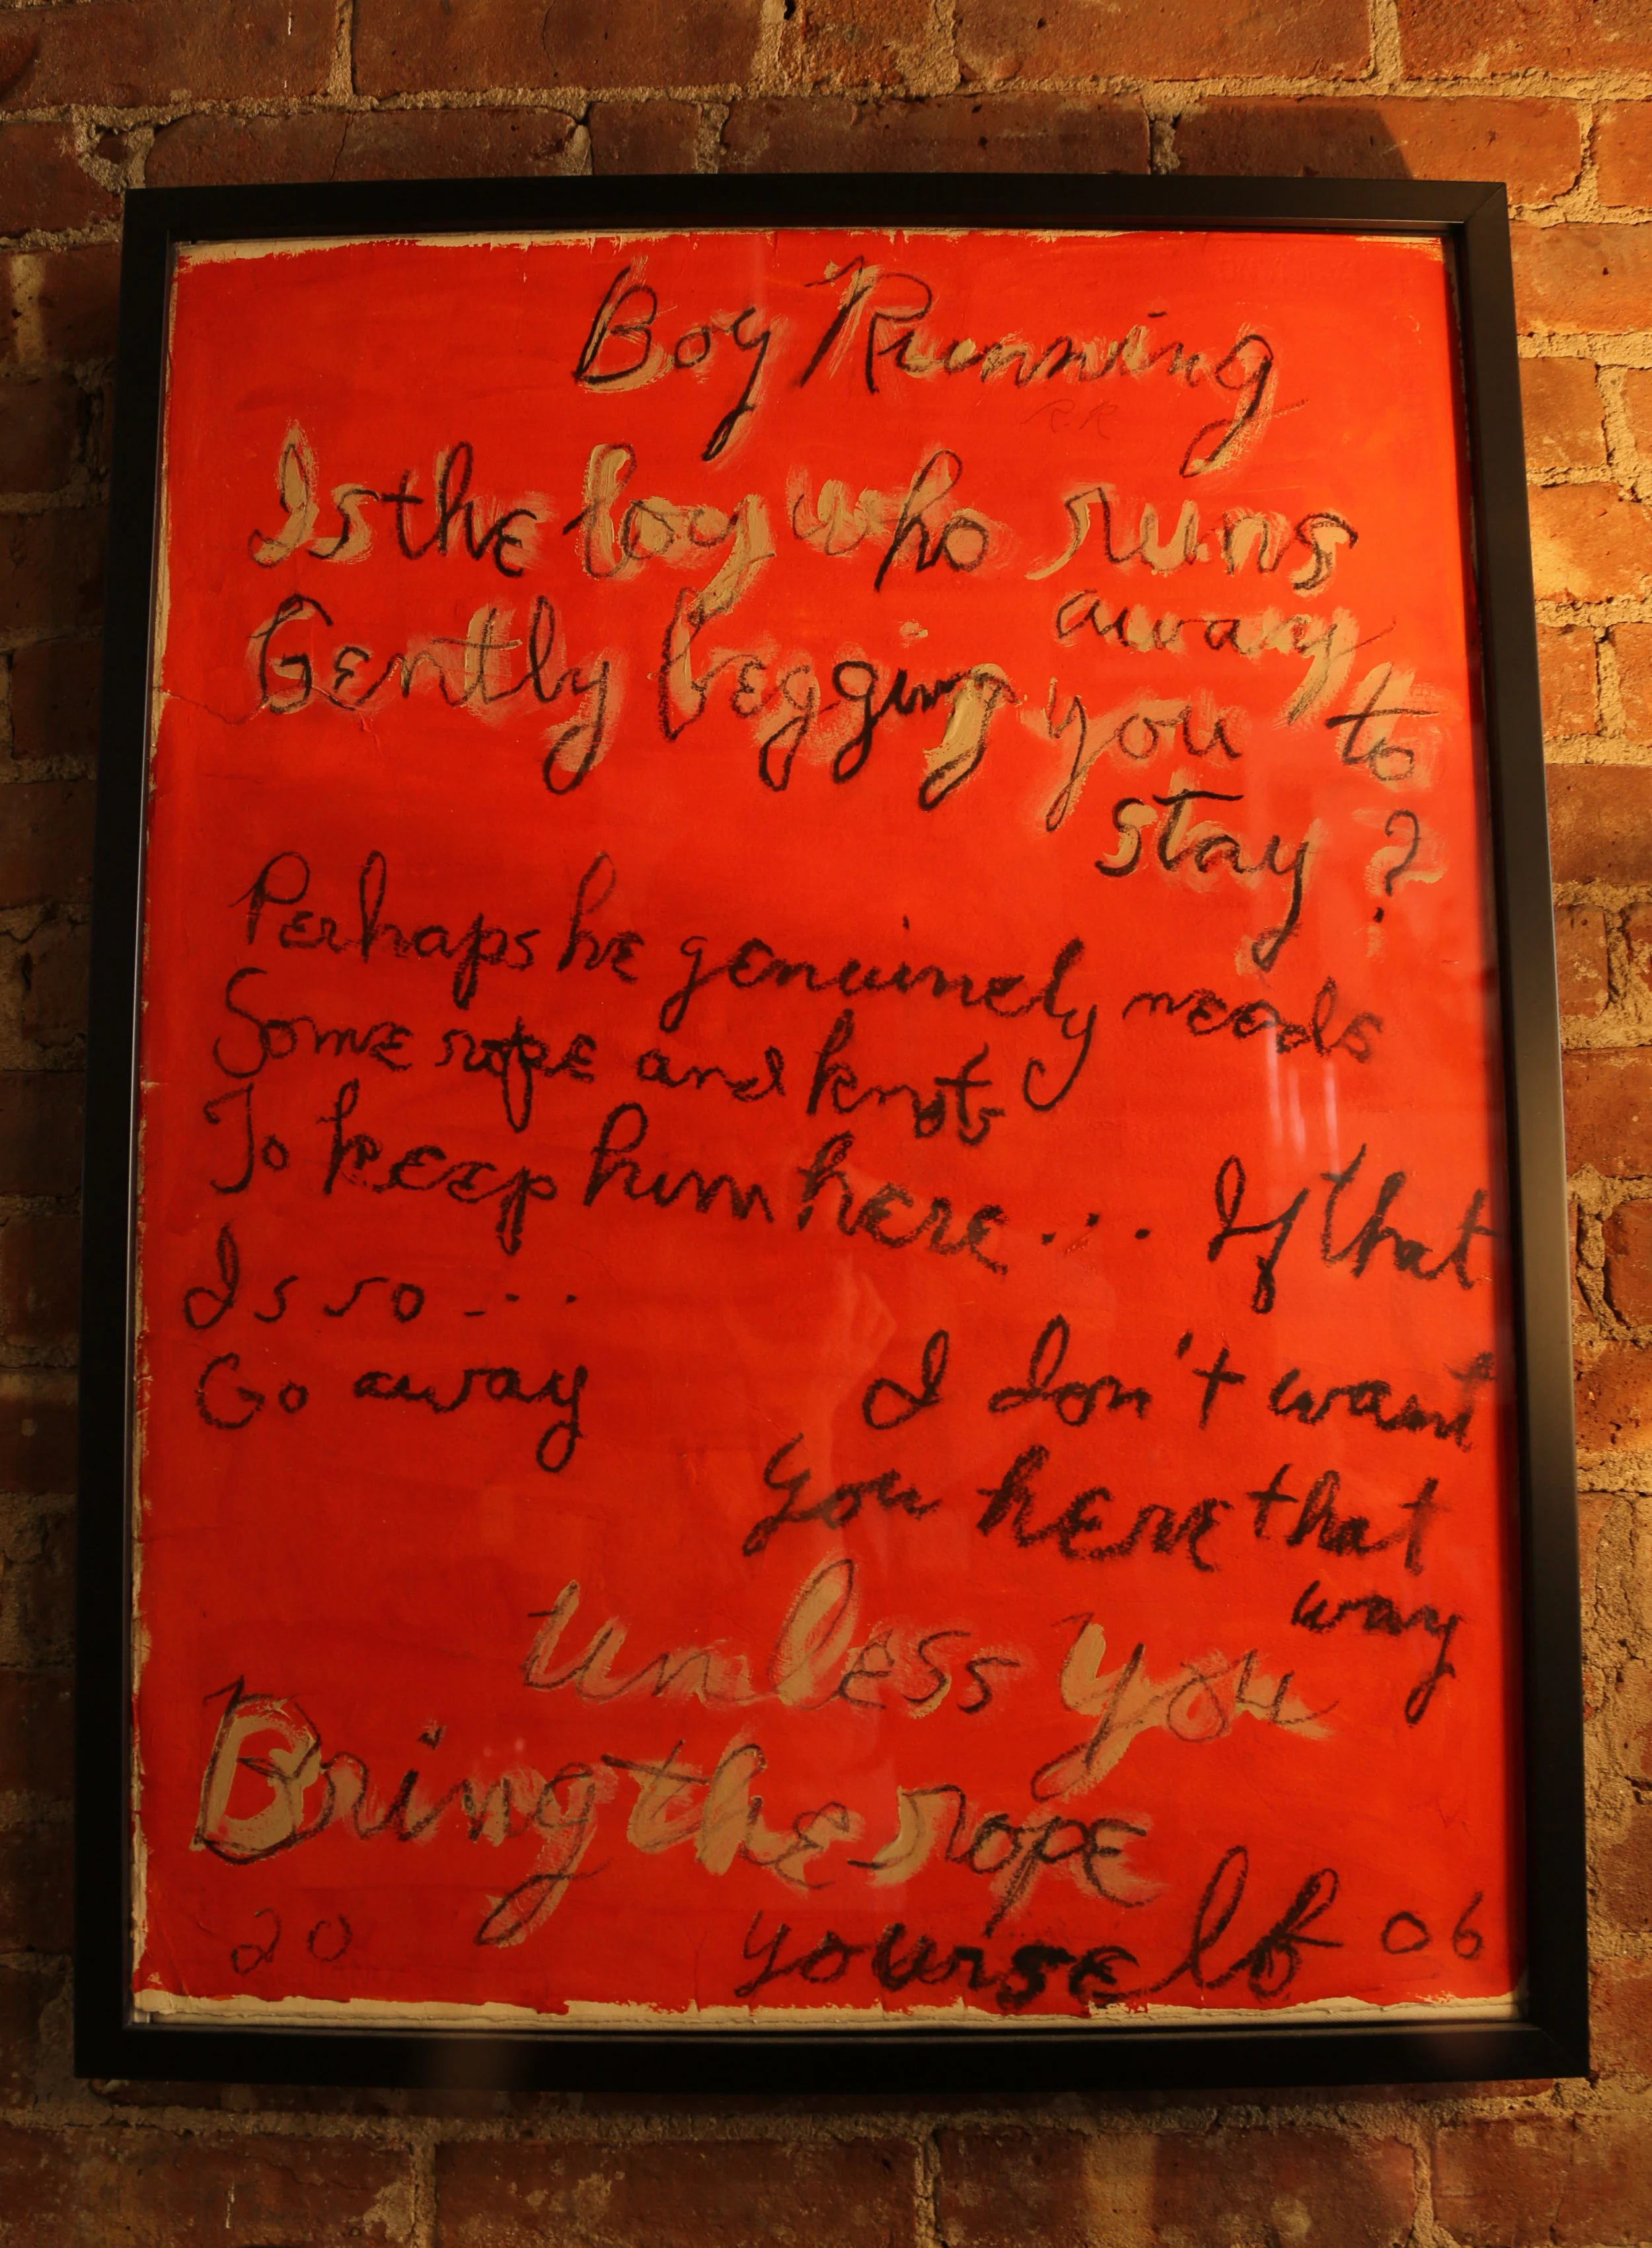 Boy Running
R.R
Is the boy who runs
away
Gently begging you to
stay?
Perhaps he genuinely needs
Some rope and knots
To keep him here... If that
Is so...
Go away I don't want
you here that
way
unless you
Bring the rope
yourself
20 06